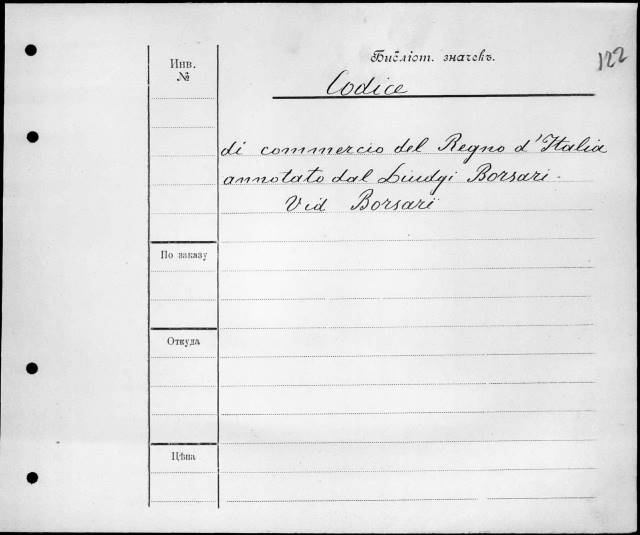 122
Библіот. значекъ.
Инв.
№
Codice
di commercio del Regno d'Italia
annotato dal Liudgi Borsari.
Vid Borsari
По заказу
Откуда
Цѣна